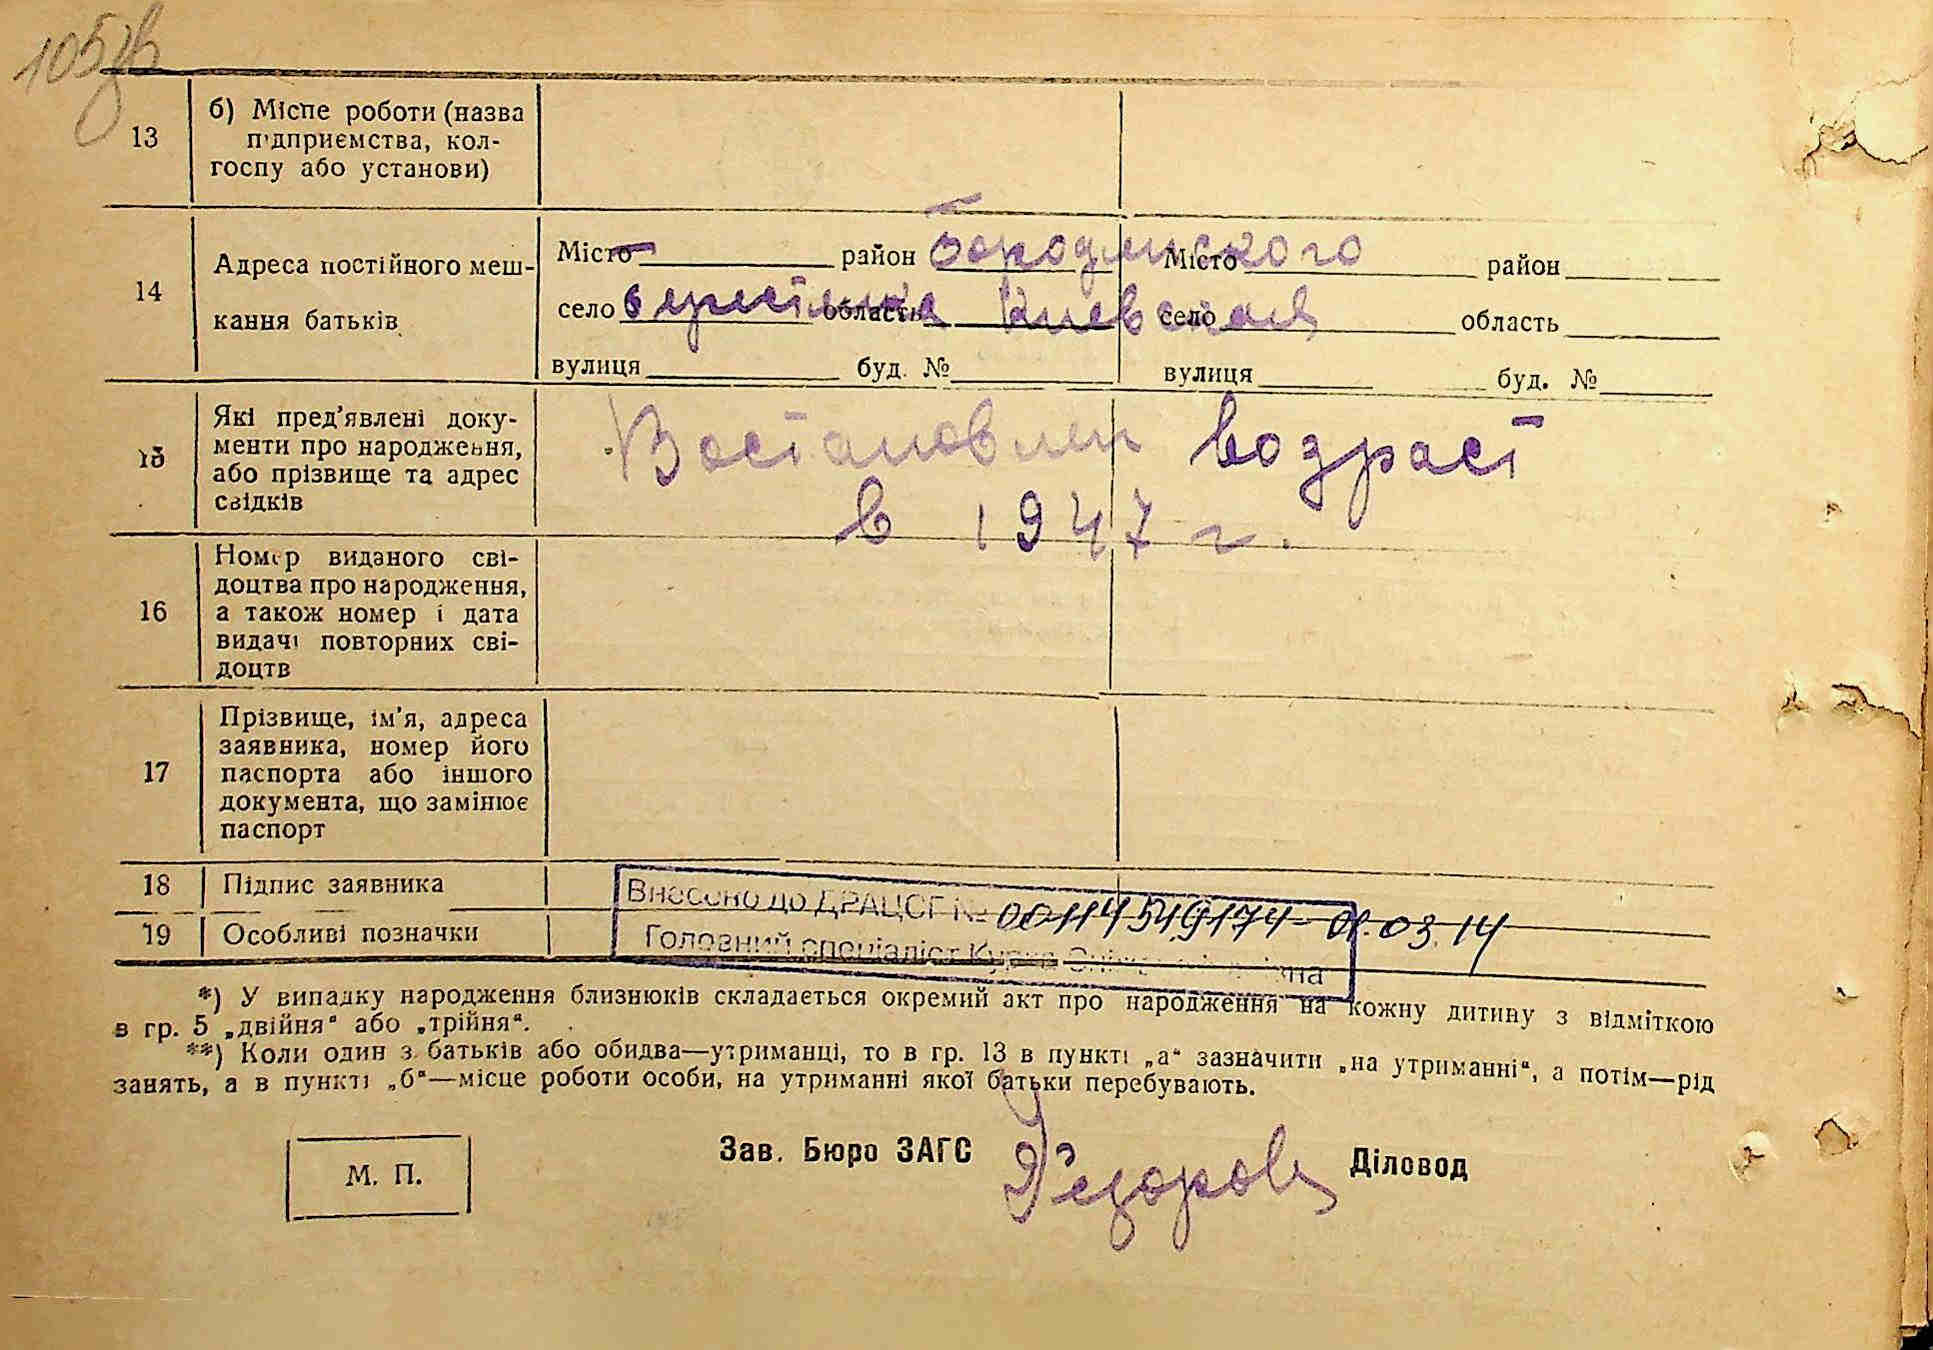 105зв
13
б) Місце роботи (назва
підприємства, кол-
госпу або установи)
14
Адреса постійного меш-
кання батьків
Місто район Бородянского Місто район
село область Киевская село область
вулиця буд. № вулиця буд. №
15
Які пред'явлені доку-
менти про народження,
або прізвище та адрес
свідків
Востановлен возраст
в 1947 г.
16
Номер виданого сві-
доцтва про народження,
а також номер і дата
видачі повторних сві-
доцтв
17
Прізвище, ім'я, адреса
заявника, номер його
паспорта або іншого
документа, що замінює
паспорт
18 Підпис заявника
Внесено до ДРАЦСГ № 00114549174 01.03.14
19 Особливі позначки
Головний спеціаліст
*) У випадку народження близнюків складається окремий акт про народження на кожну дитину з відміткою
в гр. 5 „двійня" або „трійня".
**) Коли один з батьків або обидва—утриманці, то в гр. 13 в пункті „а" зазначити „на утриманні", а потім—рід
занять, а в пункті „б"—місце роботи особи, на утриманні якої батьки перебувають.
М. П.
Зав. Бюро ЗАГС Діловод